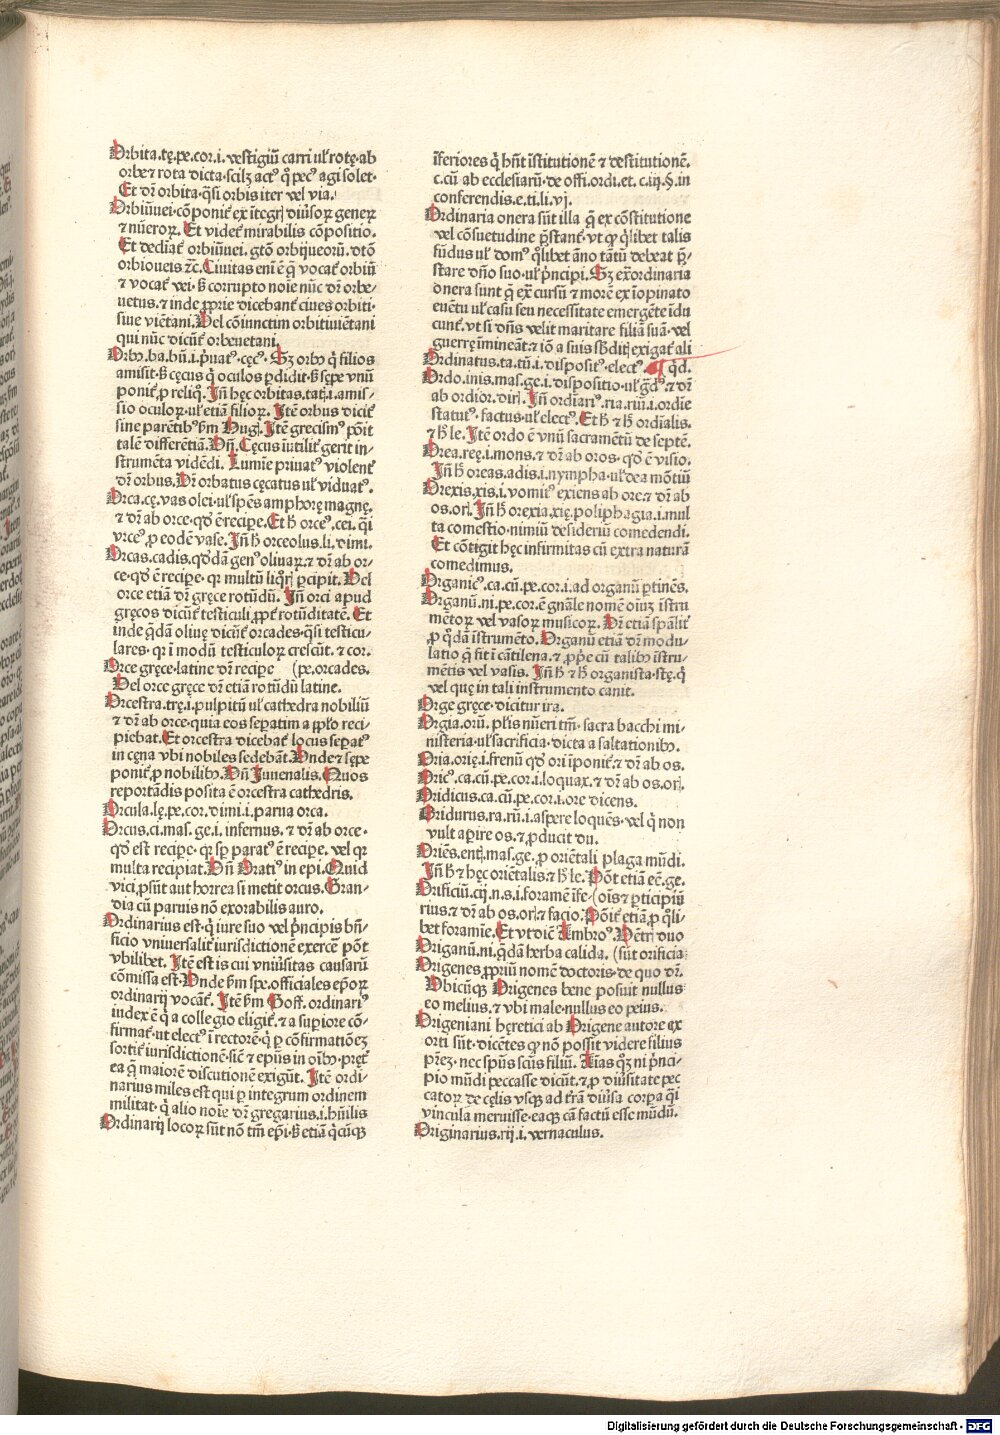 Orbita.tę.pe.cor.i. vestigiū carri ul' rotę. ab
orbe ⁊ rota dicta. scilꝫ actꝰ q̇ pecꝰ agi solet.
Et dr̄ orbita. q̄si orbis iter vel via.
Orbiūuei. cōponit᷑ ex itegrꝭ diūsoꝝ geneꝝ
⁊ nūeroꝝ. Et videt᷑ mirabilis cōpositio.
Et declīat᷑ orbiūuei. gtō orbiȷueorū. dtō
orbioueis ⁊c̄. Ciuitas eni ē q̄ vocat᷑ orbiū
⁊ vocat᷑ vei. s̄ corrupto noīe nūc dr̄ orbe-
uetus. ⁊ inde ꝓprie dicebant᷑ ciues orbiti-
siue viētani. Vel cōiunctim orbitiuiētani
qui nūc dicūt᷑ orbeuetani.
Orbꝰ.ba.bū.i. p̄uatꝰ. cęcꝰ. Sꝫ orbꝰ q̇ filios
amisit. s̄ cęcus q̇ oculos ꝑdidit. s̄ sępe vnū
ponit᷑ ꝓ reliq̊. Jn̄ hęc orbitas. tatꝭ. i. amis-
sio oculoꝝ ul' etiā filioꝝ. Jtē orbus dicit᷑
sine parētibꝰ s̄m Hugꝭ. Jtē grecismꝰ pōit
talē differētiā. Vn̄. Cęcus iutilit᷑ gerit in-
strumēta vidēdi. Lumīe priuatꝰ violent᷑
dr̄ orbus. Dr̄ orbatus cęcatus ul' viduatꝰ.
Orca.cę. vas olei. ul' spēs amphorę magnę.
⁊ dr̄ ab orce. qd̓ ē recipe. Et h̄ orceꝰ.cei. q̄i
vrceꝰ ꝓ eodē vase. Jn̄ h̄ orceolus.li. dimi.
Orcas.cadis. qd̓dā genꝰ oliuaꝝ. ⁊ dr̄ ab or-
ce. qd̓ ē recipe. qꝛ multū liq̊rꝭ ꝑcipit. Vel
orce etiā dr̄ gręce rotūdū. Jn̄ orci apud
gręcos dicūt᷑ testiculi ꝓpt᷑ rotūditatē. Et
inde q̄dā oliuę dicūt᷑ orcades. q̄si testicu-
lares. qꝛ ī modū testiculoꝝ crescūt. ⁊ cor.
Orce gręce. latine dr̄ recipe (pe.orcades.
Vel orce gręce dr̄ etiā rotūdū latine.
Orcestra.trę.i. pulpitū ul' cathedra nobiliū
⁊ dr̄ ab orce. quia eos seꝑatim a ꝓplo reci-
piebat. Et orcestra dicebat᷑ locus seꝑatꝰ
in cęna vbi nobiles sedebāt. Vnde ⁊ sępe
ponit᷑ ꝓ nobilibꝰ. Vn̄ Juuenalis. Quos
reportādis posita ē orcestra cathedris.
Orcula.lę.pe.cor.dimi.i. parua orca.
Orcus.ci.mas.ge.i. infernus. ⁊ dr̄ ab orce.
qd̓ est recipe. qꝛ sꝑ paratꝰ ē recipe. vel qꝛ
multa recipiat. Vn̄ Oratiꝰ in epi. Quid
vici ꝓsūt aut horrea si metit orcus. Gran-
dia cū paruis nō exorabilis auro.
Ordinarius est. q̇ iure suo vel p̄ncipis bn̄i-
ficio vniuersalit᷑ iurisdictionē exercē pōt
vbilibet. Jtē est is cui vniūsitas causarū
cōmissa est. Vnde s̄m spe. officiales ep̄oꝝ
ordinarij vocāt᷑. Jtē s̄m Goff. ordinariꝰ
iudex ē q̇ a collegio eligit᷑. ⁊ a supiore cō-
firmat᷑. ut electꝰ ī rectorē. q̇ ꝑ cōfirmationēꝫ
sortit᷑ iurisdictionē. sic̄ ⁊ ep̄us in oībꝰ. pręt᷑
ea q̄ maiorē discutionē exigūt. Jtē ordi-
narius miles est qui ꝑ integrum ordinem
militat. q̇ alio noīe dr̄ gregarius. i. hūilis
Ordinarij locoꝝ sūt nō tm̄ ep̄i. s̄ etiā q̇cūqꝫ
īferiores q̇ hn̄t īstitutionē ⁊ destitutionē.
c. cū ab ecclesiarū. de offi. ordi. et. c. iij. §. in
conferendis. e. ti. li. vj.
Ordinaria onera sūt illa q̄ ex cōstitutione
vel cōsuetudine p̄stant᷑. vt ꝙ q̇libet talis
fūdus ul' domꝰ q̇libet āno tātū debeat p̄-
stare dn̄o suo. ul' p̄ncipi. Sꝫ ex̄ordinaria
onera sunt q̄ ex̄ cursū ⁊ morē ex iopinato
euētu ul' casu seu necessitate emergēte idu
cunt᷑. vt si dn̄s velit maritare filiā suā. vel
guerrę īmineāt. ⁊ iō a suis s̄bditꝭ exigat᷑ ali
Ordinatus.ta.tū.i. dispositꝰ. electꝰ. ¶ q̇d.
Ordo.inis.mas.ge.i. dispositio. ul' g̊dꝰ. ⁊ dr̄
ab ordior.dirꝭ. Jn̄ ordīariꝰ.ria.riū.i. ordīe
statutꝰ. factus. ul' electꝰ. Et h̄ ⁊ h̄ ordīalis.
⁊ h̄ le. Jtē ordo ē vnū sacramētū de septē.
Orea.reę.i. mons. ⁊ dr̄ ab oros. qd̓ ē visio.
Jn̄ h̄ oreas.adis.i. nympha. ul' dea mōtiū
Orexis.xis.i. vomitꝰ exiens ab ore. ⁊ dr̄ ab
os.ori. Jn̄ h̄ orexia.xię. poliphagia. i. mul
ta comestio. nimiū desideriū comedendi.
Et cōtigit hęc infirmitas cū extra naturā
comedimus.
Organicꝰ.ca.cū.pe.cor.i. ad organū ꝑtinēs.
Organū.ni.pe.cor. ē gn̄ale nomē oīuꝫ īstru
mētoꝝ vel vasoꝝ musicoꝝ. Dr̄ etiā sp̄alit᷑
ꝓ q̊dā īstrumēto. Organū etiā dr̄ modu-
latio q̄ fit ī cātilena. ⁊ ꝓp̄e cū talibꝰ īstru-
mētis vel vasis. Jn̄ h̄ ⁊ h̄ organista.stę. q̇
vel quę in tali instrumento canit.
Orge gręce. dicitur ira.
Orgia.orū. pl̄is nūeri tm̄. sacra bacchi mi-
nisteria. ul' sacrificia. dicta a saltationibꝰ.
Oria.orię.i. frenū qd̓ ori ipōnit᷑. ⁊ dr̄ ab os.
Oricꝰ.ca.cū.pe.cor.i. loquax. ⁊ dr̄ ab os.orꝭ.
Oridicus.ca.cū.pe.cor.i. ore dicens.
Oridurus.ra.rū.i. aspere loquēs. vel q̇ non
vult aꝑire os. ⁊ ꝓducit du.
Oriēs.entꝭ.mas.ge. ꝓ oriētali plaga mūdi.
Jn̄ h̄ ⁊ hęc oriētalis. ⁊ h̄ le. Pōt etiā eē. ge.
Orificiū.cij.n.s.i. foramē īfe- (oīs ⁊ ꝑticipiū
rius. ⁊ dr̄ ab os.orꝭ. ⁊ facio. Pōit᷑ etiā ꝓ q̊li-
bet foramīe. Et vt dic̄ Ambroꝰ. Vētrꝭ duo
Origanū.ni. q̄dā herba calida. (sūt orificia
Origenes. ꝓpriū nomē doctoris. de quo dr̄.
Vbicūqꝫ Origenes bene posuit nullus
eo melius. ⁊ vbi male. nullus eo peius.
Origeniani hęretici ab Origene autore ex
orti sūt. dicētes ꝙ nō possit videre filius
pr̄eꝫ. nec sp̄us sc̄us filiū. Aīas qꝫ ni p̄nci-
pio mūdi peccasse dicūt. ⁊ ꝓ diūsitate pec
catoꝝ de cęlis vsqꝫ ad tr̄ā diūsa corꝑa q̄i
vincula meruisse. eaqꝫ cā factū esse mūdū.
Originarius.rij.i. vernaculus.
Digitalisierung gefördert durch die Deutsche Forschungsgemeinschaft - DFG